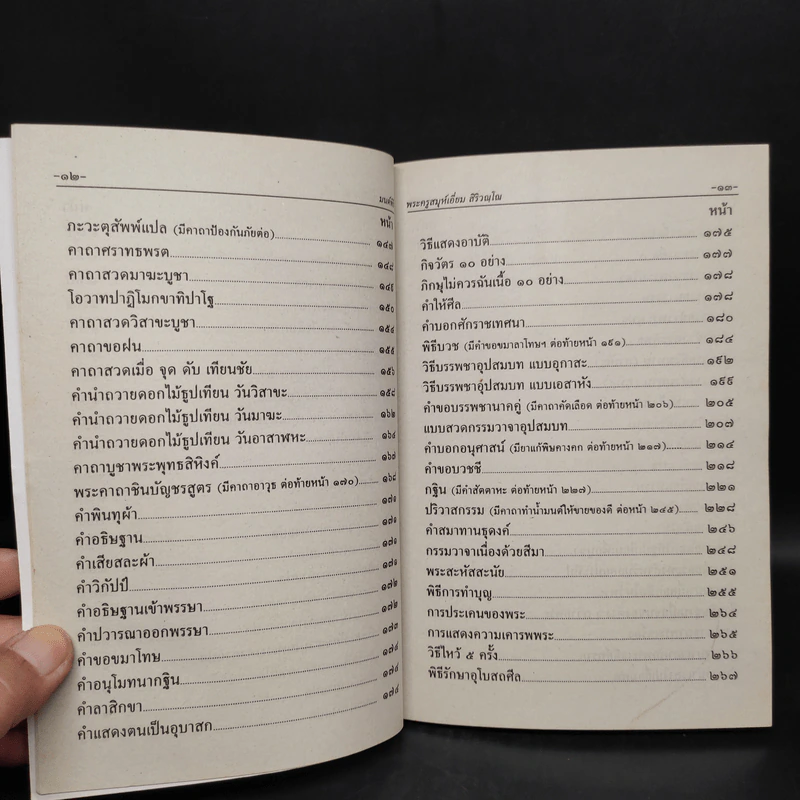 -๑๒-
หน้า
ภะวะตุสัพพ์แปล (มีคาถาป้องกันภัยต่อ)........๑๔๗
คาถาศราทธพรต........๑๔๘
คาถาสวดมาฆะบูชา........๑๔๙
โอวาทปาฏิโมกขาทิปาโฐ........๑๕๐
คาถาสวดวิสาขะบูชา........๑๕๔
คาถาขอฝน........๑๕๕
คาถาสวดเมื่อ จุด ดับ เทียนชัย........๑๕๖
คำนำถวายดอกไม้ธูปเทียน วันวิสาขะ........๑๕๘
คำนำถวายดอกไม้ธูปเทียน วันมาฆะ........๑๖๒
คำนำถวายดอกไม้ธูปเทียน วันอาสาฬหะ........๑๖๔
คาถาบูชาพระพุทธสิหิงค์........๑๖๗
พระคาถาชินบัญชรสูตร (มีคาถาอาวุธ ต่อท้ายหน้า ๑๗๐)........๑๖๘
คำพินทุผ้า........๑๗๑
คำอธิษฐาน........๑๗๑
คำเสียสละผ้า........๑๗๑
คำวิกัปป์........๑๗๒
คำอธิษฐานเข้าพรรษา........๑๗๒
คำปวารณาออกพรรษา........๑๗๓
คำขอขมาโทษ........๑๗๔
คำอนุโมทนากฐิน........๑๗๔
คำลาสิกขา........๑๗๔
คำแสดงตนเป็นอุบาสก........
พระครูสมุห์เอี่ยม สิริวณฺโณ -๑๓-
หน้า
วิธีแสดงอาบัติ........๑๗๕
กิจวัตร ๑๐ อย่าง........๑๗๗
ภิกษุไม่ควรฉันเนื้อ ๑๐ อย่าง........๑๗๘
คำให้ศีล........๑๗๘
คำบอกศักราชเทศนา........๑๘๐
พิธีบวช (มีคำขอขมาลาโทษฯ ต่อท้ายหน้า ๑๙๑)........๑๘๔
วิธีบรรพชาอุปสมบท แบบอุกาสะ........๑๙๒
วิธีบรรพชาอุปสมบท แบบเอสาหัง........๑๙๙
คำขอบรรพชานาคคู่ (มีคาถาคัดเลือด ต่อท้ายหน้า ๒๐๖)........๒๐๕
แบบสวดกรรมวาจาอุปสมบท........๒๐๗
คำบอกอนุศาสน์ (มียาแก้พิษคางคก ต่อท้ายหน้า ๒๑๗)........๒๑๔
คำขอบวชชี........๒๑๘
กฐิน (มีคำสัตตาหะ ต่อท้ายหน้า ๒๒๗)........๒๒๑
ปริวาสกรรม (มีคาถาทำน้ำมนต์ให้ขายของดี ต่อหน้า ๒๔๕)........๒๒๘
คำสมาทานธุดงค์........๒๔๖
กรรมวาจาเนื่องด้วยสีมา........๒๔๘
พระสะหัสสะนัย........๒๕๑
พิธีการทำบุญ........๒๕๕
การประเคนของพระ........๒๖๔
การแสดงความเคารพพระ........๒๖๕
วิธีไหว้ ๕ ครั้ง........๒๖๖
พิธีรักษาอุโบสถศีล........๒๖๗